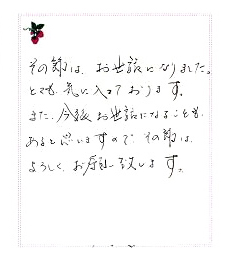 その節は、お世話になりました。
とても、気に入っております。
また、今後お世話になることも、
あると思いますので、その節は、
よろしく、お願い致します。